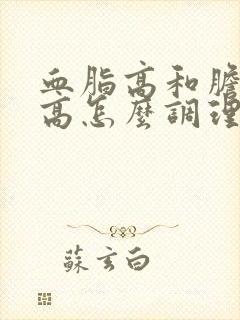 血脂高和膽
高怎麼調理
蘇玄白